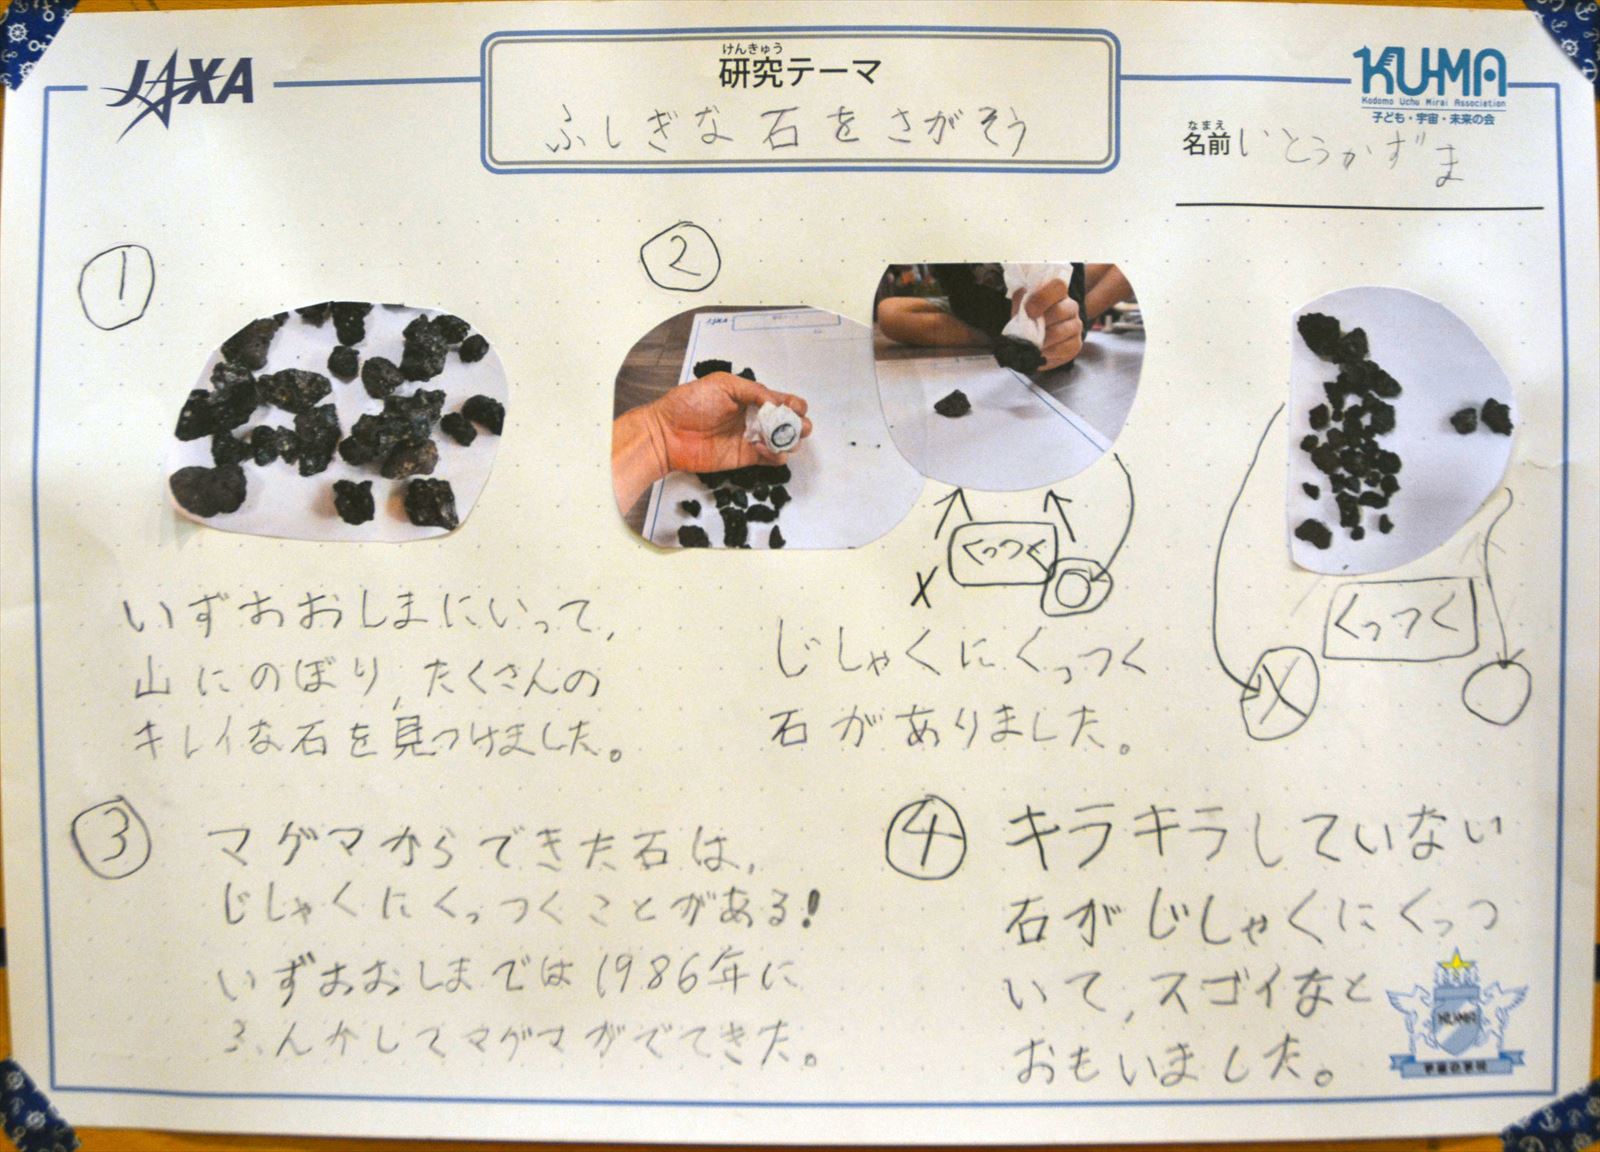 JAXA
けんきゅう
研究テーマ
ふしぎな石をさがそう
KU-MA
Kodomo Uchu Mirai Association
子ども・宇宙・未来の会
なまえ
名前 いとうかずま
①
いずおおしまにいって,
山にのぼり,たくさんの
キレイな石を見つけました。
②
JAXA
くっつく
×
○
じしゃくにくっつく
石がありました。
くっつく
×
○
③
マグマからできた石は,
じしゃくにくっつくことがある!
いずおおしまでは1986年に
ふんかしてマグマがでてきた。
④
キラキラしていない
石がじしゃくにくっつ
いて,スゴイなと
おもいました。
KU-MA